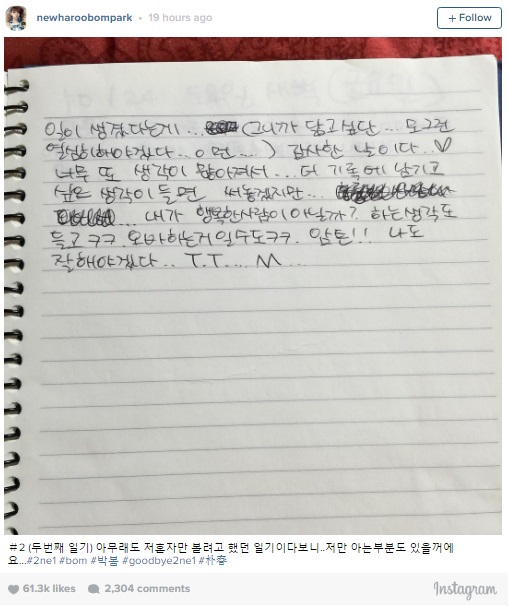 newharoobompark • 19 hours ago
+ Follow
일이 생겼다는게... (그니까 닮고싶단... 모그런
열심히해야겠다..ㅇ면....) 감사한 날이다..♡
너무 또 생각이 많아져서... 더 기록에 남기고
싶은 생각이 들면 써놓겠지만...
... 내가 행복한사람이 아닐까? 하는생각도
들고ㅋㅋ 오바하는거일수도ㅋㅋ. 암튼!! 나도
잘해야겠다.. T.T.... M...
#2 (두번째 일기) 아무래도 저혼자만 볼려고 했던 일기이다보니..저만 아는부분도 있을꺼에
요...#2ne1 #bom #박봄 #goodbye2ne1 #朴春
61.3k likes 2,304 comments
Instagram